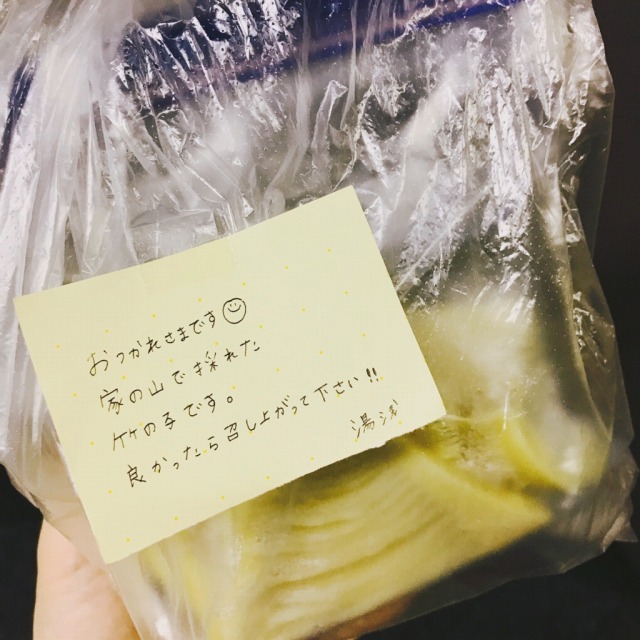 おつかれさまです☺
家の山で採れた
竹の子です。
良かったら召し上がって下さい!!
湯浅